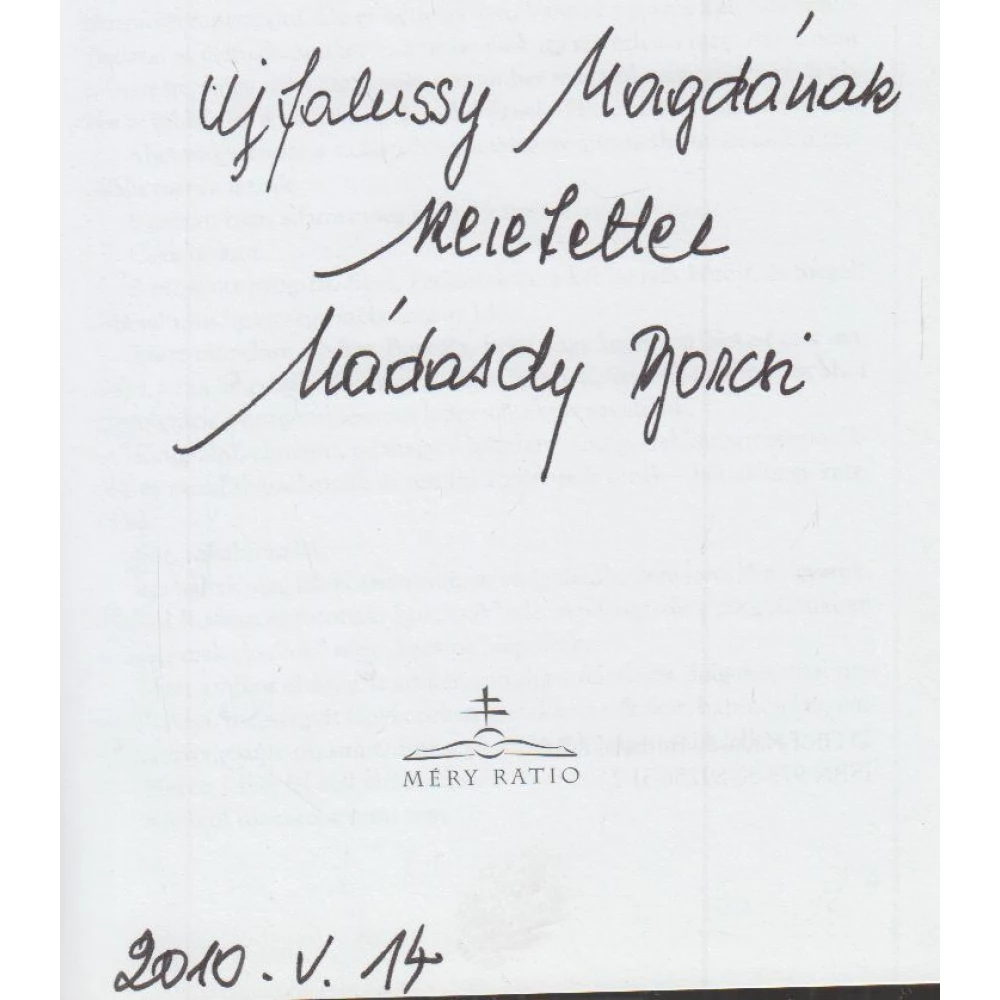 Újfalussy Magdának
szeretettel
Nádasdy Borcsi
MÉRY RATIO
2010. V. 14